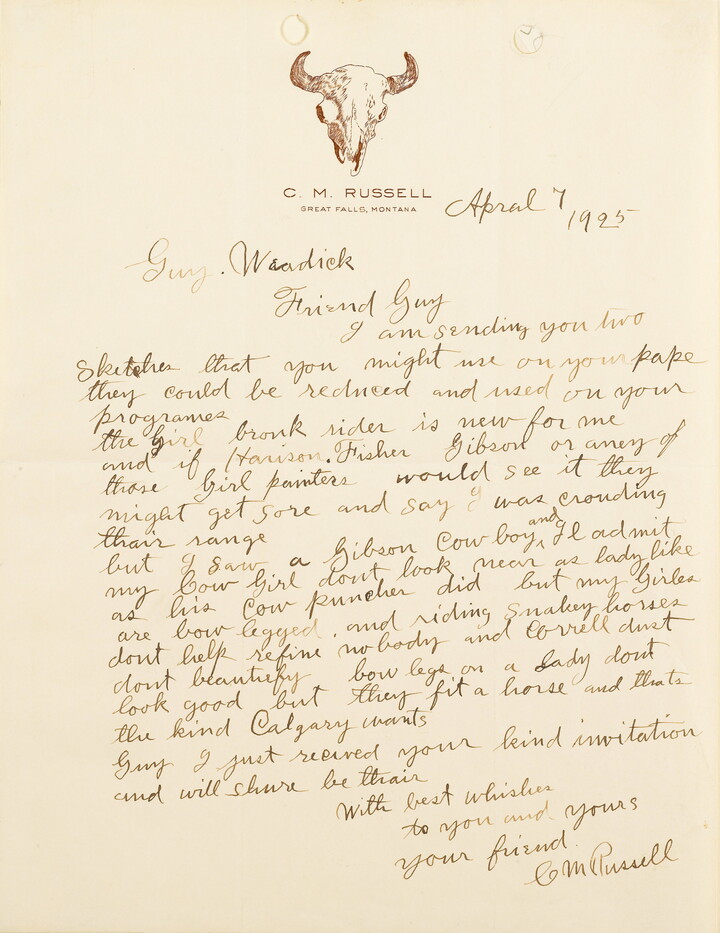 C. M. RUSSELL
GREAT FALLS, MONTANA
Apral 7
1925
Guy. Weadick
Friend Guy
I am sending you two
Sketches that you might use on your pape
they could be reduced and used on your
programes
the Girl bronk rider is new for me
and if Harison. Fisher Gibson or aney of
those Girl painters would see it they
might get sore and say I was crouding
thair range
but I saw a Gibson Cow boy, and Il admit
my Cow Girl dont look near as lady like
as his Cow puncher did but my Girles
are bow legged. and riding snakey horses
dont help refine nobody and Correll dust
dont beautiefy bow legs on a lady dont
look good but they fit a horse and thats
the kind Calgary wants
Guy I just recived your kind invitation
and will shure be thair
With best whishes
to you and yours
your friend.
C M Russell